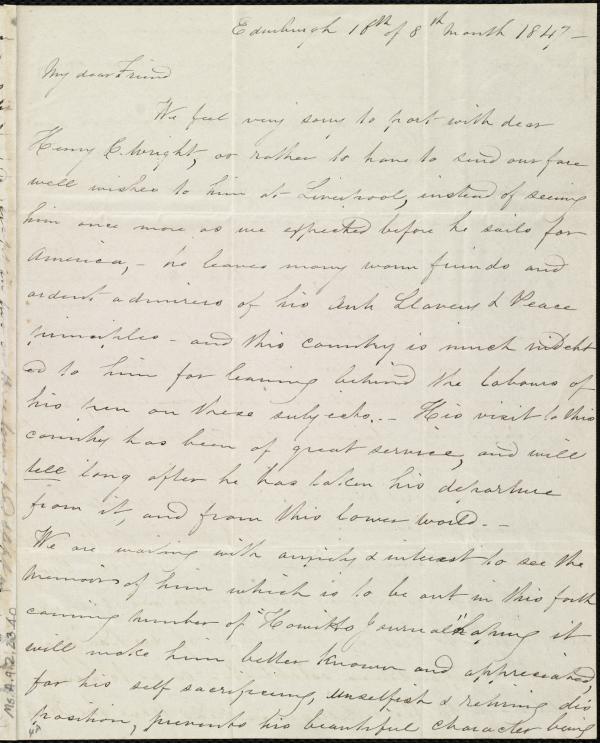 Edinburgh 18th of 8th Month 1847 -
My dear Friend
We feel very sorry to part with dear
Henry C. Wright, or rather to have to send our fare
well wishes to him at Liverpool, instead of seeing
him once more as we expected before he sails for
America, - he leaves many warm friends and
ardent admirers of his Anti Slavery & Peace
principles - and this country is much indebt
ed to him for leaving behind the labours of
his pen on these subjects. - His visit to this
country has been of great service, and will
tell long after he has taken his departure
from it, and from this lower world. -
We are waiting with anxiety & interest to see the
Memoir of him which is to be out in this forth
coming number of "Howitts Journal" hoping it
will make him better known and appreciated,
for his self sacrificing, unselfish & retiring dis
position, prevents his beautiful character being
Ms.A.9.2.23.40